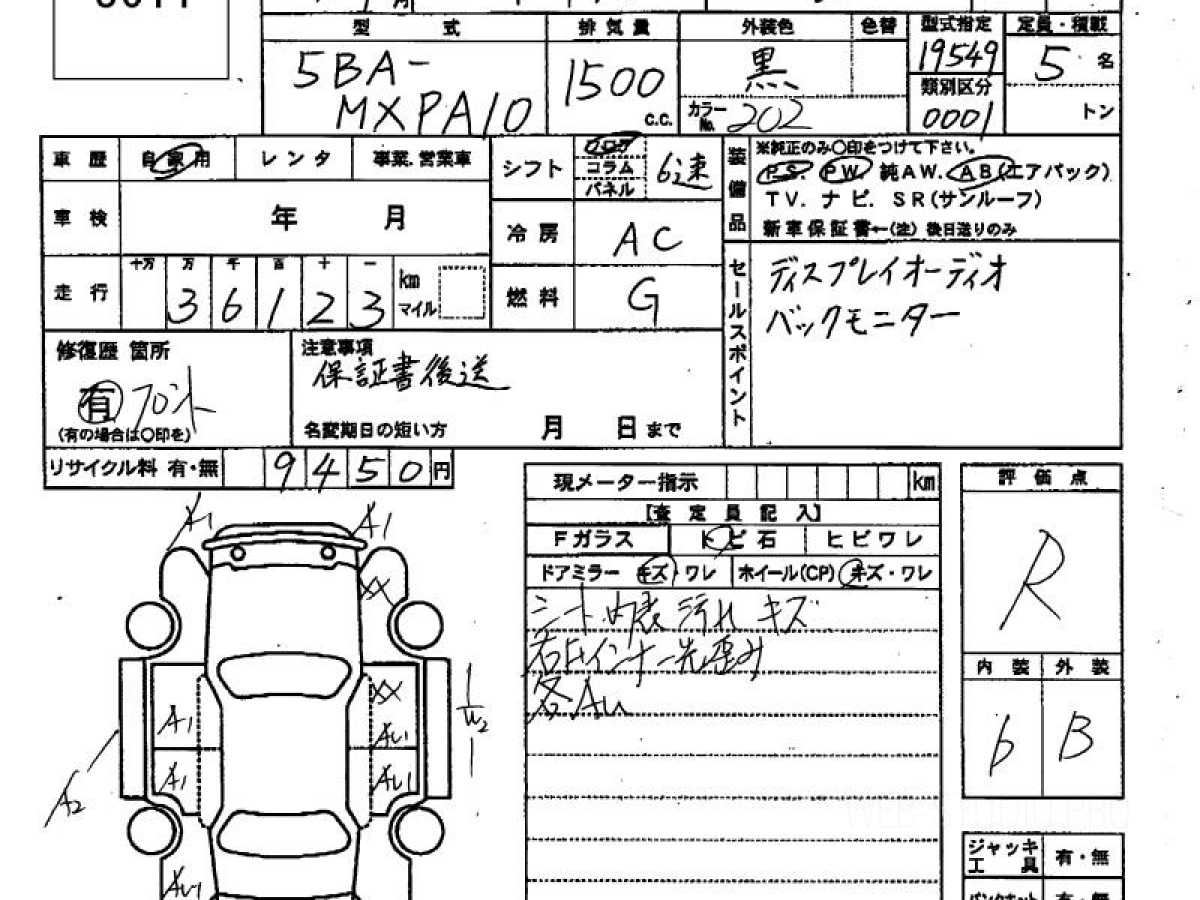 型式
5BA-
MXPA10
排気量
1500
c.c.
外装色 色替
黒
カラーNo. 202
型式指定
19549
類別区分
0001
定員・積載
5 名
トン
車歴 自家用 レンタ 事業.営業車
車検 年 月
走行 十万 万 千 百 十 一
3 6 1 2 3
km
マイル
シフト フロア
コラム
パネル
6速
冷房 AC
燃料 G
装備品
※純正のみ○印をつけて下さい。
PS. PW 純AW. AB(エアバック)
TV. ナビ. SR(サンルーフ)
新車保証書←(注) 後日送りのみ
セールスポイント
ディスプレイオーディオ
バックモニター
修復歴 箇所
有 フロント
(有の場合は○印を)
注意事項
保証書後送
名変期日の短い方 月 日まで
リサイクル料 有・無 9450円
現メーター指示 km
【査定員記入】
Fガラス トビ石 ヒビワレ
ドアミラー キズ・ワレ ホイール(CP) キズ・ワレ
シート.内表 汚れ キズ
右Fインナー先歪み
各AU
評価点
R
内装 外装
b B
A1 A1
XX
XX
A1 AU1
W2
A1 AU1
A2
AU1
ジャッキ
工具 有・無
パンクキット 有・無